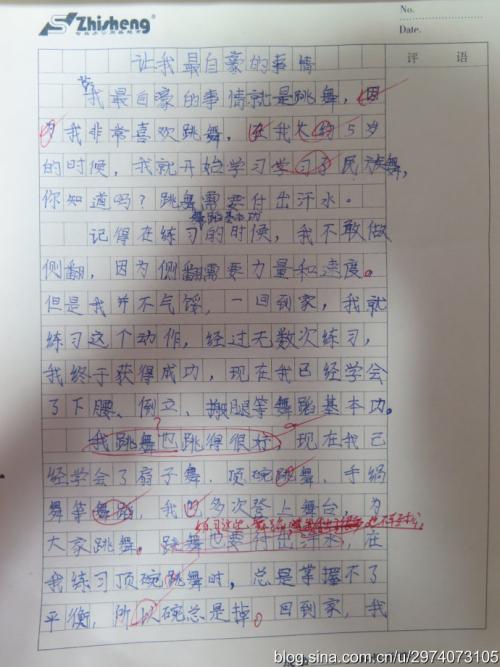 Zhisheng
No.
Date.
评 语
让我最自豪的事情
我最自豪的事情就是跳舞，因
为我非常喜欢跳舞，在我大约5岁
的时候，我就开始学习学习了民族舞，
你知道吗？跳舞需要付出汗水。
舞蹈基本功
记得在练习的时候，我不敢做
侧翻，因为侧翻需要力量和速度。
但是我并不气馁，一回到家，我就
练习这个动作，经过无数次练习，
我终于获得成功，现在我已经学会
了下腰、倒立、搬腿等舞蹈基本功。
我跳舞也跳得很好，现在我已
经学会了扇子舞、顶碗跳舞、手绢
舞等舞蹈，我也多次登上舞台，为
大家跳舞。跳舞也要付出汗水，在
我练习顶碗跳舞时，总是掌握不了
平衡，所以碗总是掉。回到家，我
blog.sina.com.cn/u/2974073105